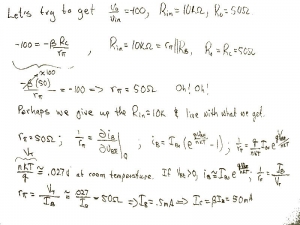 Let's try to get v_o/v_in = -100, R_in = 10KΩ, R_o = 50Ω
-100 = -β R_C / r_π , R_in = 10KΩ = r_π || R_B , R_o = R_C = 50Ω
≈100
-β(50) / r_π = -100 => r_π = 50Ω Oh! Oh!
Perhaps we give up the R_in = 10K & live with what we got.
r_π = 50Ω ; 1/r_π = ∂i_B/∂v_BE |_Q ; i_B = I_Bo (e^{qV_BE/nKT} - 1) ; 1/r_π = q/nKT I_Bo e^{qV_BE/nKT}
V_T
nKT/q ≅ .027V at room temperature. If V_BE > 0, i_B ≅ I_Bo e^{qV_BE/nKT} , 1/r_π = I_B/V_T
r_π = V_T/I_B ≅ .027/I_B = 50Ω => I_B = .5mA => I_C = βI_B = 50mA